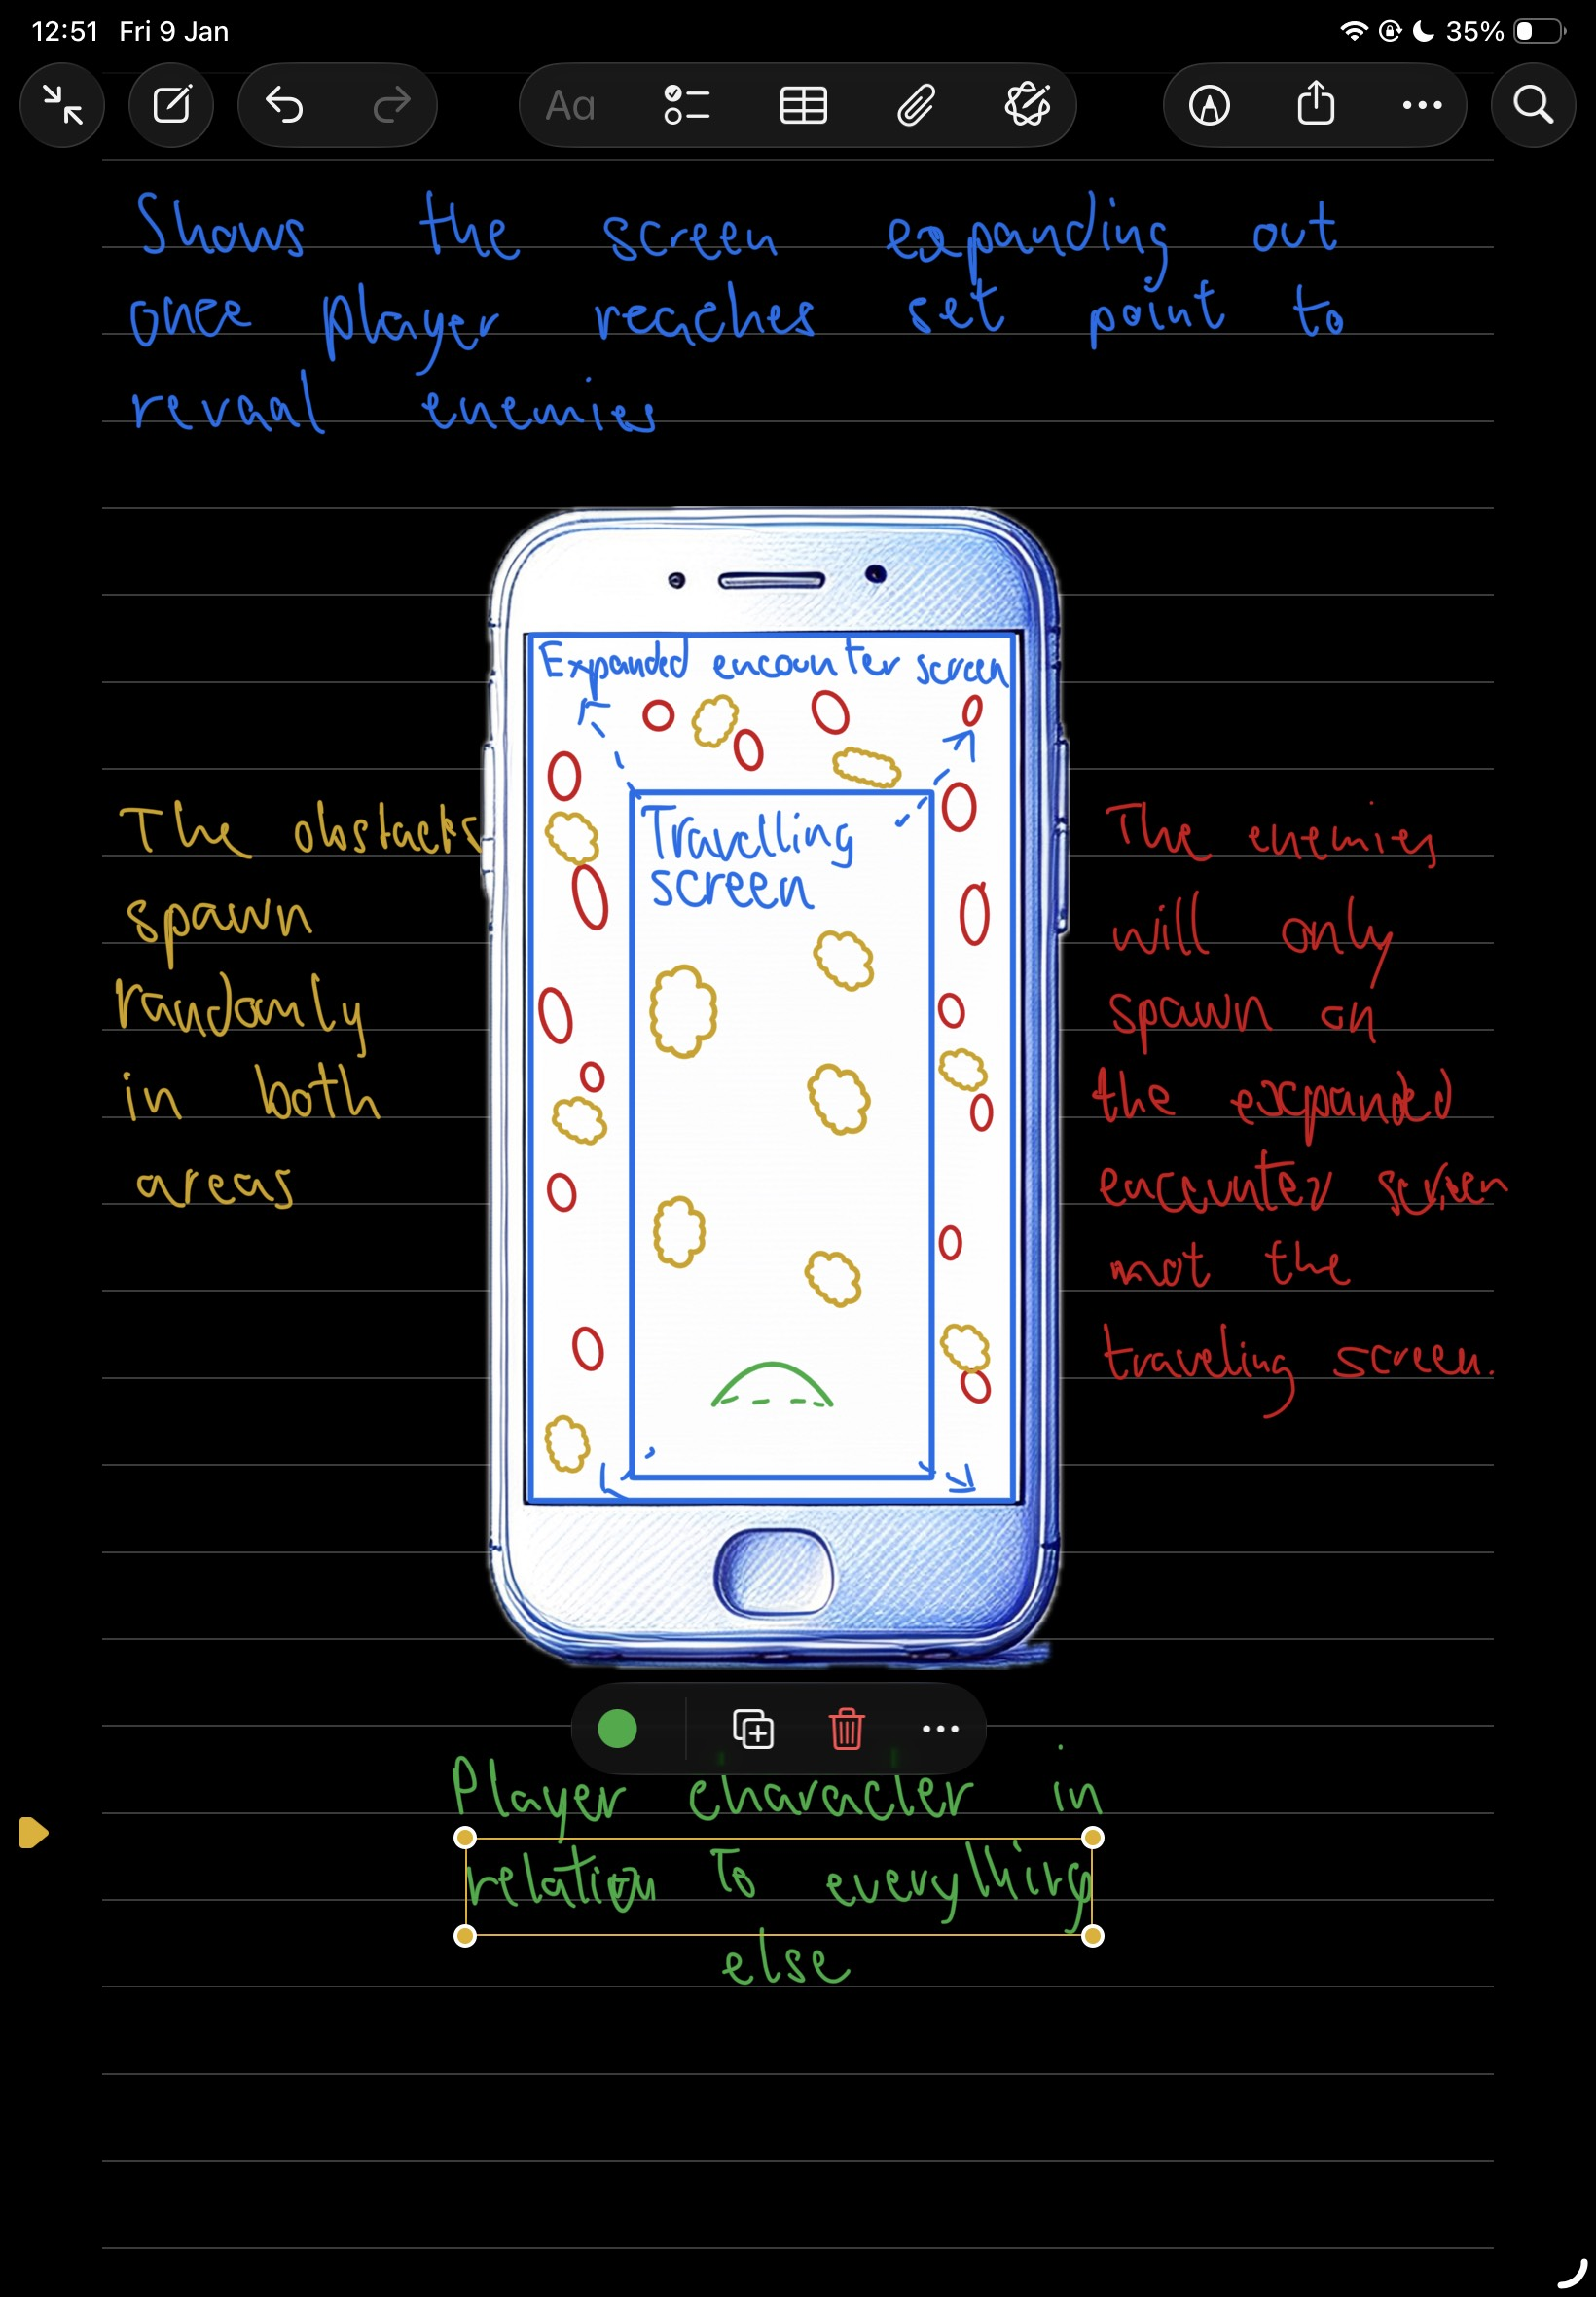 12:51 Fri 9 Jan
35%
Aa
Shows the screen expanding out
once player reaches set point to
reveal enemies
Expanded encounter screen
Travelling
screen
The obstacles
spawn
randomly
in both
areas
The enemies
will only
spawn on
the expanded
encounter screen
not the
traveling screen.
Player character in
relation to everything
else